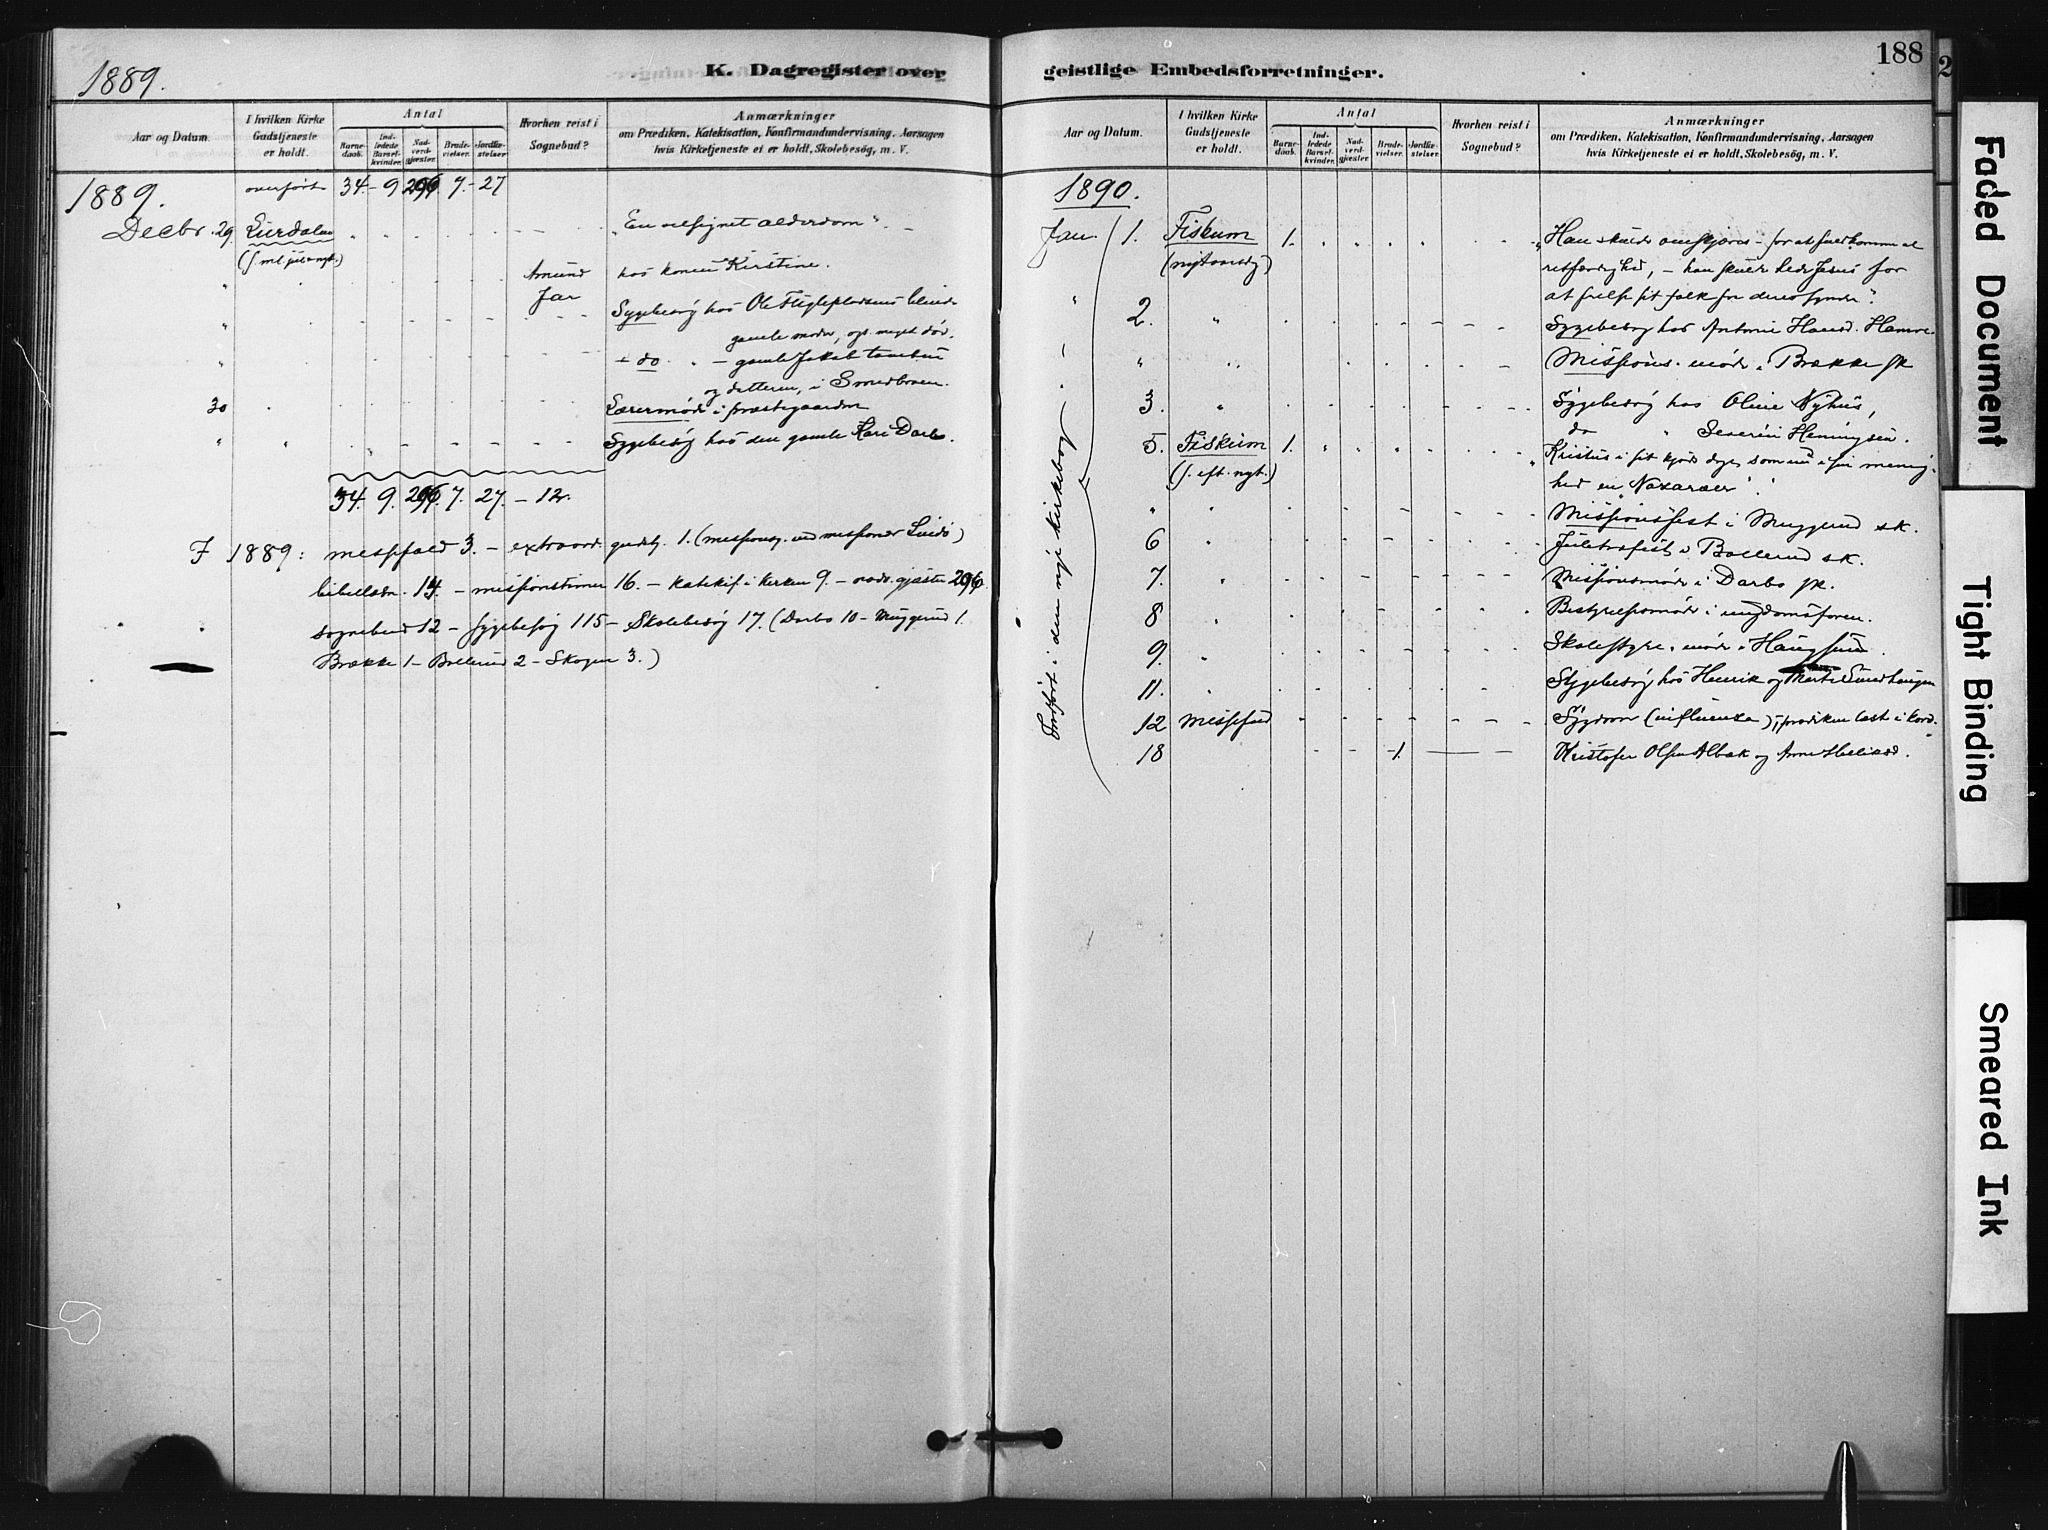 1889.
K. Dagregister over
Aar og Datum.
I hvilken Kirke Gudstjeneste er holdt.
Antal
Barnedaab.
Indledede Barselkvinder.
Nadverdgjæster.
Brudevielser.
Jordfæstelser.
Hvorhen reist i Sognebud?
Anmærkninger
om Prædiken, Katekisation, Konfirmandundervisning, Aarsagen
hvis Kirketjeneste ei er holdt, Skolebesøg, m. V.
1889. overført 34 - 9 296 7. - 27
Decbr. 29. „En velsignet alderdom“.
(s. ml. jul & nyt.)
Amund hos konen Kirstine.
Jar
Sygebesøg hos Ole
gamle moder, ogs. meget døv.
do. " - gamle Jakob
og datteren, i Smedbraaten.
30 Lærermøde i præstegaarden
" " Sygebesøg hos den gamle Kari Darbo.
34. 9. 296. 7. 27. - 12.
I 1889: messefald 3. - extraord. gudstj. 1. (missionsgj. ved missionær)
bibellæsn. 14. - missionstimer 16. - katekis. i kirken 9. - nadv. gjæster 296.
sognebud 12 - sygebesøg 115 - Skolebesøg 17. (Darbo 10 - Muggerud 1.
Brække 1 - Bollerud 2 - Skogen 3.)
188
geistlige Embedsforretninger.
Aar og Datum.
I hvilken Kirke Gudstjeneste er holdt.
Antal
Barnedaab.
Indledede Barselkvinder.
Nadverdgjæster.
Brudevielser.
Jordfæstelser.
Hvorhen reist i Sognebud?
Anmærkninger
om Prædiken, Katekisation, Konfirmandundervisning, Aarsagen
hvis Kirketjeneste ei er holdt, Skolebesøg, m. V.
1890.
Jan. 1. Fiskum 1. „Han skulde omskjæres - for at fuldkomme al
(nytaarsdg) retfærdighed, - han skulde hede Jesus for
at frelse sit folk fra deres synder“.
2. " Sygebesøg hos Antonie Hansd. Hamre.
" " Missions-møde i Brække sk
3. " Sygebesøg hos Oline Nyhus,
do " Severin Henningsen.
5. Fiskum 1. „Kristus i sit kjøds dage som nu i sin menig-
(s. eft. nyt.) hed en „Nazaræer“.
" " Missionsfest i Muggerud sk.
6 " Juletræfest i Bollerud sk.
7. " Missionsmøde i Darbo sk.
8 " Bestyrelsesmøde i ungdomsforen.
9. " Skolestyre-møde i Haugsund.
11. " Sygebesøg hos Henrik og
12 Messefald Sygdom (influenza), prædiken læst i kord.
18 1. Kristofer Olsen Albak og
Indført i den nye kirkebog
2
Faded Document
Tight Binding
Smeared Ink